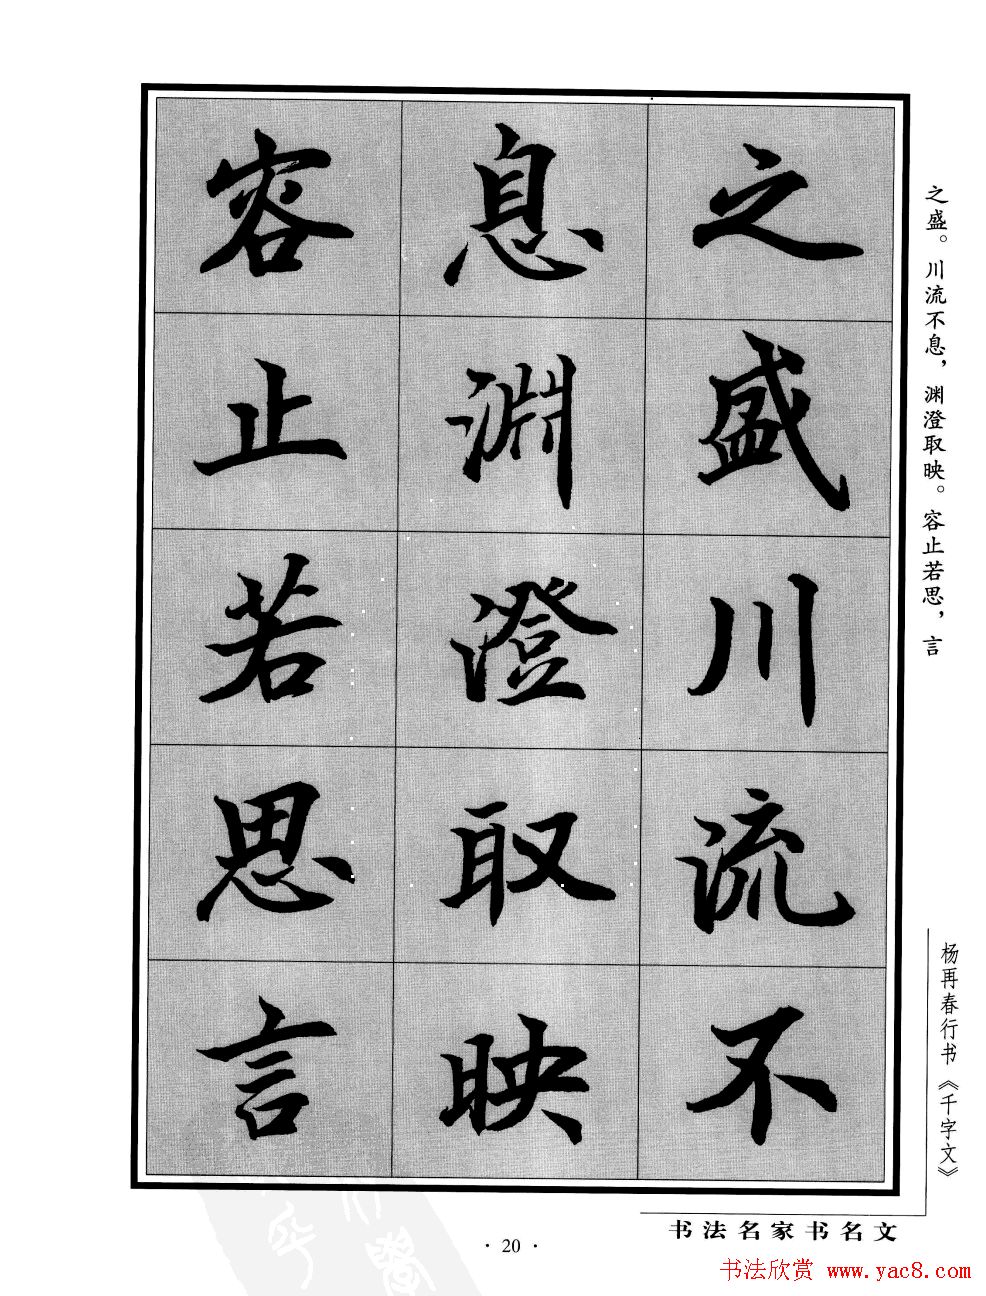 之盛川流不
息淵澄取映
容止若思言
之盛。川流不息，渊澄取映。容止若思，言
杨再春行书《千字文》
书法名家书名文
·20·
书法欣赏 www.yac8.com